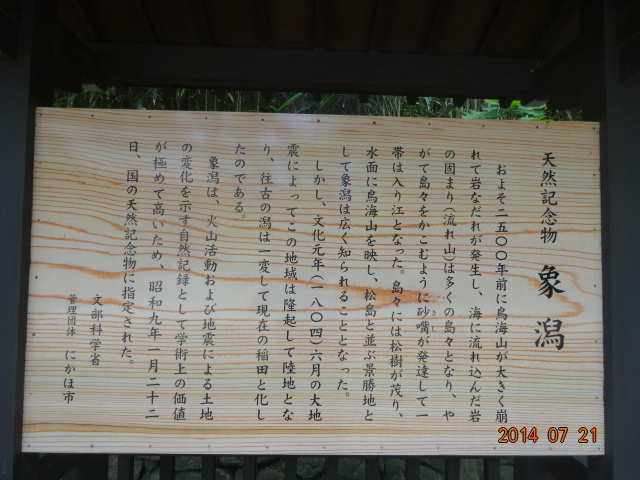 天然記念物 象潟
およそ二五〇〇年前に鳥海山が大きく崩
れて岩なだれが発生し、海に流れ込んだ岩
の固まり(流れ山)は多くの島々となり、や
がて島々をかこむように砂嘴が発達して一
帯は入り江となった。島々には松樹が茂り、
水面に鳥海山を映し、松島と並ぶ景勝地と
して象潟は広く知られることとなった。
しかし、文化元年(一八〇四)六月の大地
震によってこの地域は隆起して陸地とな
り、往古の潟は一変して現在の稲田と化し
たのである。
象潟は、火山活動および地震による土地
の変化を示す自然記録として学術上の価値
が極めて高いため、昭和九年一月二十二
日、国の天然記念物に指定された。
文部科学省
管理団体 にかほ市
2014 07 21